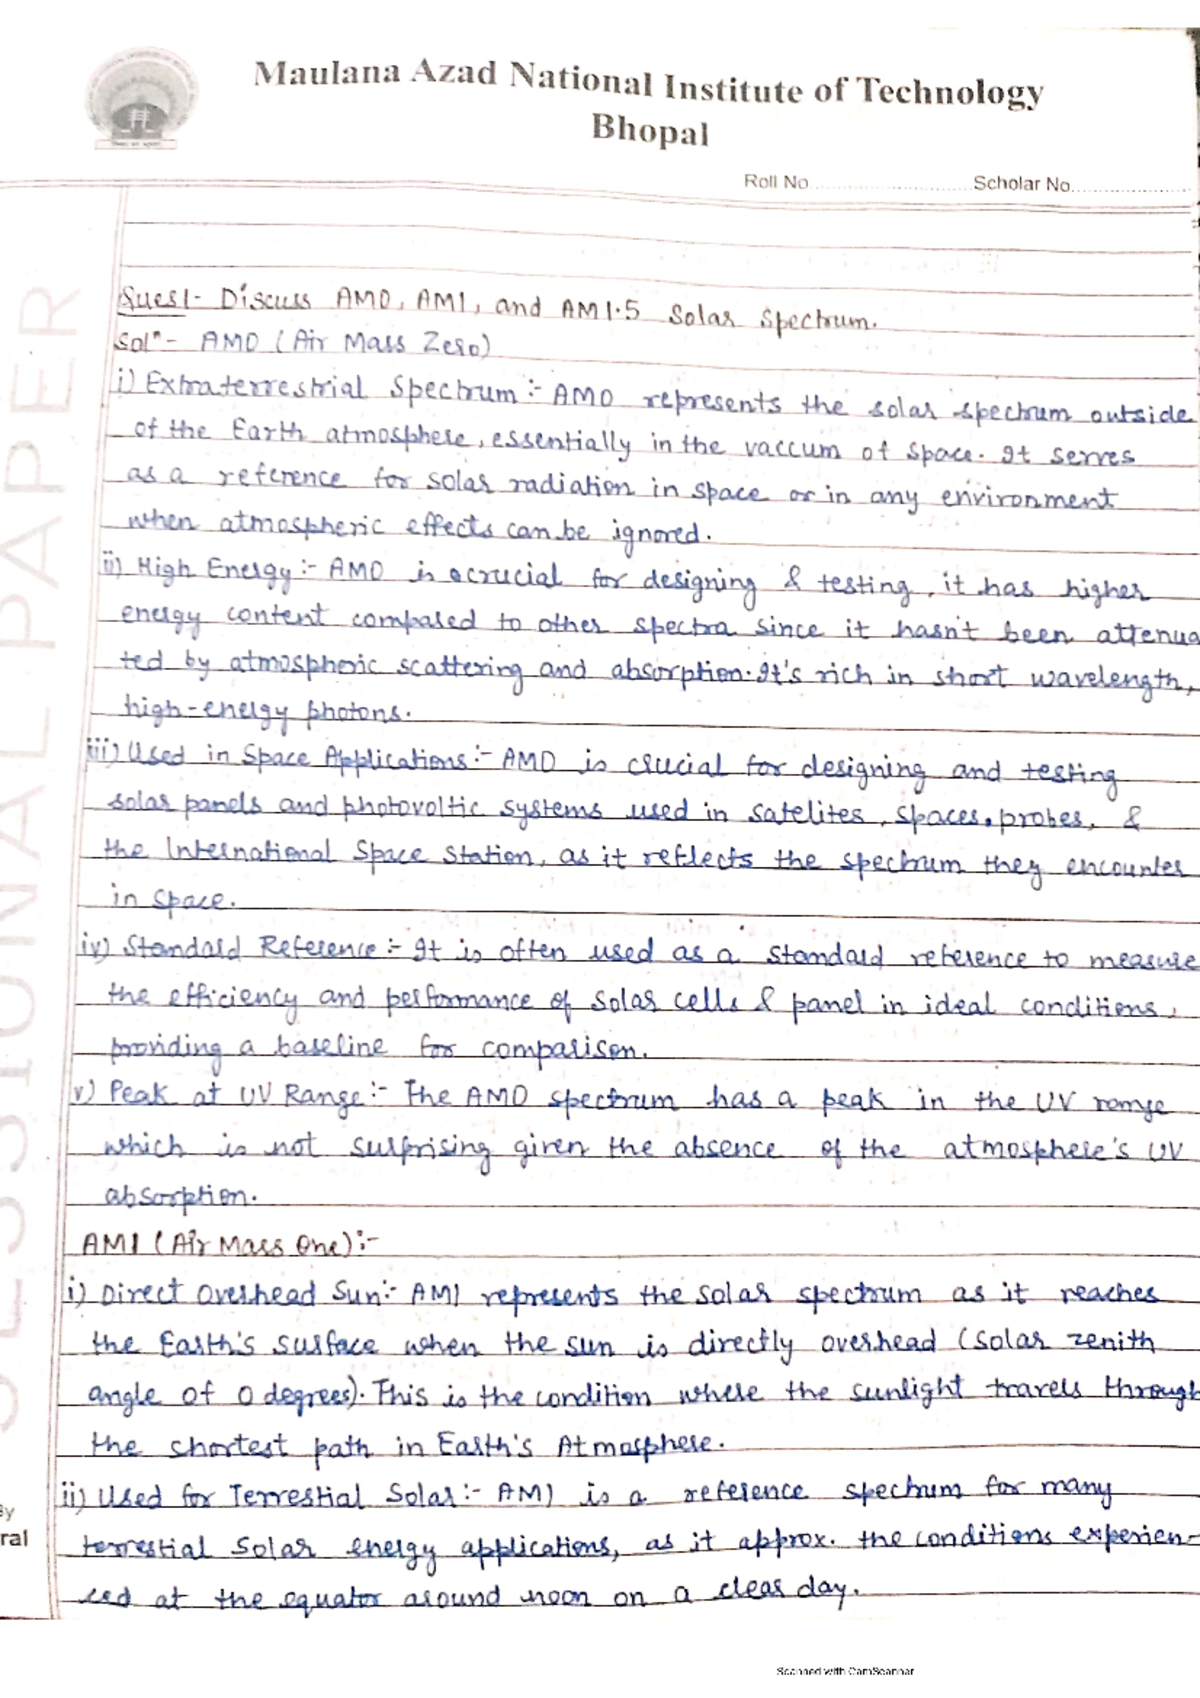 Maulana Azad National Institute of Technology
Bhopal
Roll No.............................Scholar No......................
SESSIONAL PAPER
Ques1- Discuss AM0, AM1, and AM1.5 Solar Spectrum.
Solⁿ- AM0 (Air Mass Zero)
i) Extraterrestrial Spectrum:- AM0 represents the solar spectrum outside
of the Earth atmosphere, essentially in the vaccum of space. It serves
as a reference for solar radiation in space or in any environment
when atmospheric effects can be ignored.
ii) High Energy:- AM0 is a crucial for designing & testing, it has higher
energy content compared to other spectra since it hasn't been attenua
ted by atmospheric scattering and absorption. It's rich in short wavelength,
high-energy photons.
iii) Used in Space Applications:- AM0 is crucial for designing and testing
solar panels and photovoltic systems used in satelites, spaces, probes, &
the International Space Station, as it reflects the spectrum they encounter
in space.
iv) Standard Reference:- It is often used as a standard reference to measure
the efficiency and performance of solar cells & panel in ideal conditions,
providing a baseline for comparison.
v) Peak at UV Range:- The AM0 spectrum has a peak in the UV range
which is not surprising given the absence of the atmosphere's UV
absorption.
AM1 (Air Mass One):-
i) Direct Overhead Sun:- AM1 represents the solar spectrum as it reaches
the Earth's surface when the sun is directly overhead (solar zenith
angle of 0 degrees). This is the condition where the sunlight travels through
the shortest path in Earth's Atmosphere.
ii) Used for Terrestial Solar:- AM1 is a reference spectrum for many
terrestial solar energy applications, as it approx. the conditions experien-
ced at the equator around noon on a clear day.
ral
Scanned with CamScanner